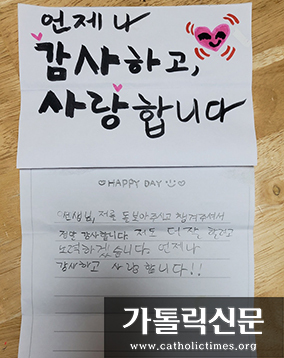 언제나
감사하고,
사랑합니다
HAPPY DAY
선생님, 저를 돌보아주시고 챙겨주셔서
정말 감사합니다. 저도 더 잘 하려고
노력하겠습니다. 언제나
감사하고 사랑합니다!!
가톨릭신문
www.catholictimes.org